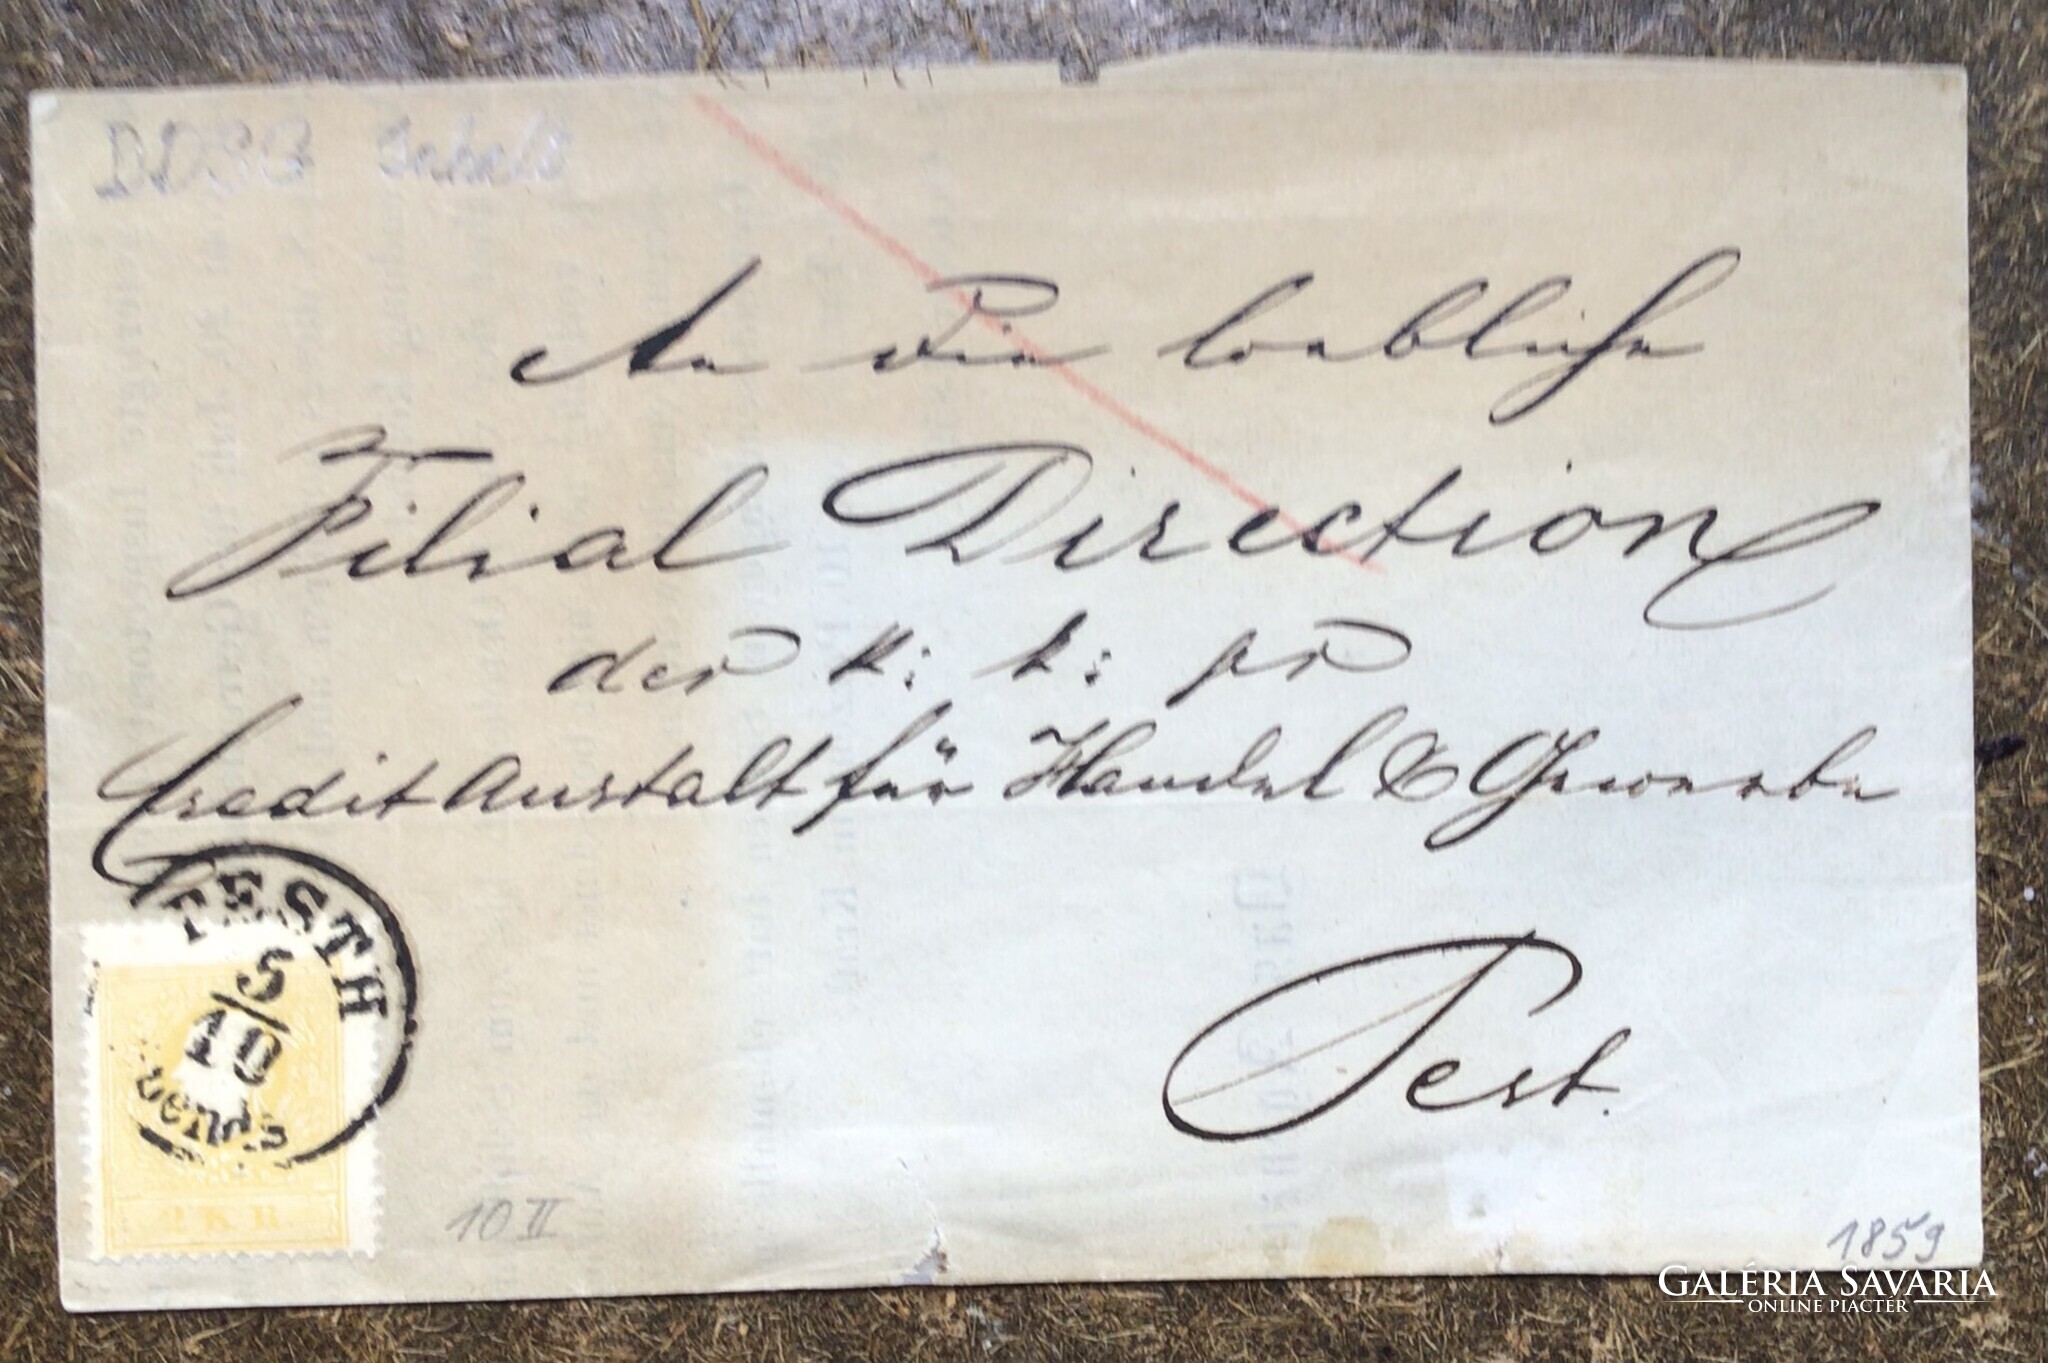 DDSG Inhalt
An die loebliche
Filial Direction
der k: k: pr
Credit Anstalt für Handel & Gewerbe
PESTH
5/10
abends
2 KR
Pest.
10 II
1859
GALÉRIA SAVARIA
ONLINE PIACTÉR